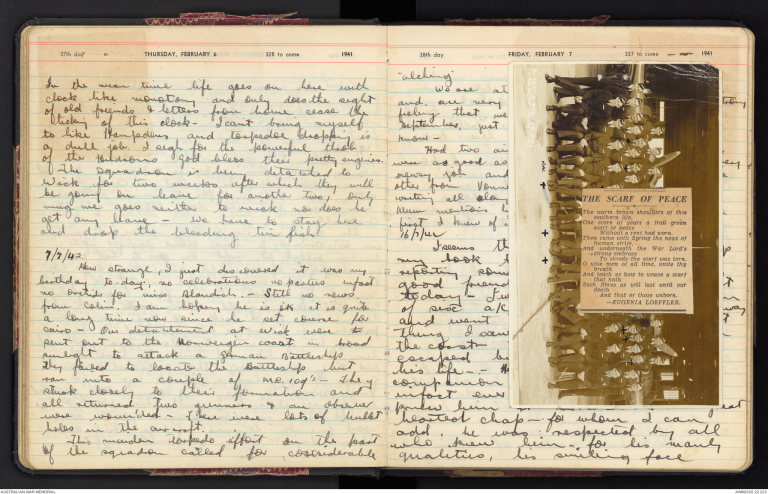 37th day THURSDAY, FEBRUARY 6 328 to come 1941
In the mean time life goes on here with
clock like monotony and only does the sight
of old friends & letters from home cease the
ticking of this clock - I cant bring myself
to like Hampdens and torpedoe dropping is
a dull job. I sigh for the powerful throb
of the Hudsons God bless their pretty engines.
The squadron is been detached to
Wick for two weeks after which they will
be going on leave for another two, only
mug me goes neither to wick nor does he
get any leave - we have to stay here
and drop the bleeding tin fish.
7/7/42.
How strange, I just discovered it was my
birthday to-day, no celebrations no parties infact
no orchids for miss Blandish. - Still no news
from Colin I am hoping he is ok it is quite
a long time now since he set course for
Cairo - Our detachment at Wick were to
sent out to the Norweigen coast in broad
sunlight to attack a German Battleship
they failed to locate the Battleship but
ran into a couple of M.E. 109's - They
stuck closely to their formation and
all returned two gunners & an observer
were wounded - There were lots of bullet
holes in the aircraft.
This murders torpedo effort on the part
of the squadron called for considerable
38th day FRIDAY, FEBRUARY 7 327 to come 1941
"alching"
We are at
and are very
feeling that we
September, just
know -
Had two air
were as good as
newsy job and
other from
writing all
Mum mentions
first I knew of
16/7/42
I seems th
my book t
reporting som
good friend
today - I w
of sesc a/c
and went
Thing I saw
the coast
escaped b
his life - H
companion
infact eve
knew him
heartted chap - for whom I can
add, he was respected by all
who knew him for his manly
qualities, his smiling face
THE SCARF OF PEACE
The warm brown shoulders of this
southern isle,
One score of years a frail green
scarf of peace
Without a rent had worn.
Then came with Spring the news of
human strife,
And underneath the War Lord's
strong embrace
To shreds the scarf was torn.
O wise men of all time, unite thy
breath
And teach us how to weave a scarf
that hath
Such fibres as will last until our
death
And that of those unborn.
—EUGENIA LOEFFLER.
AUSTRALIAN WAR MEMORIAL